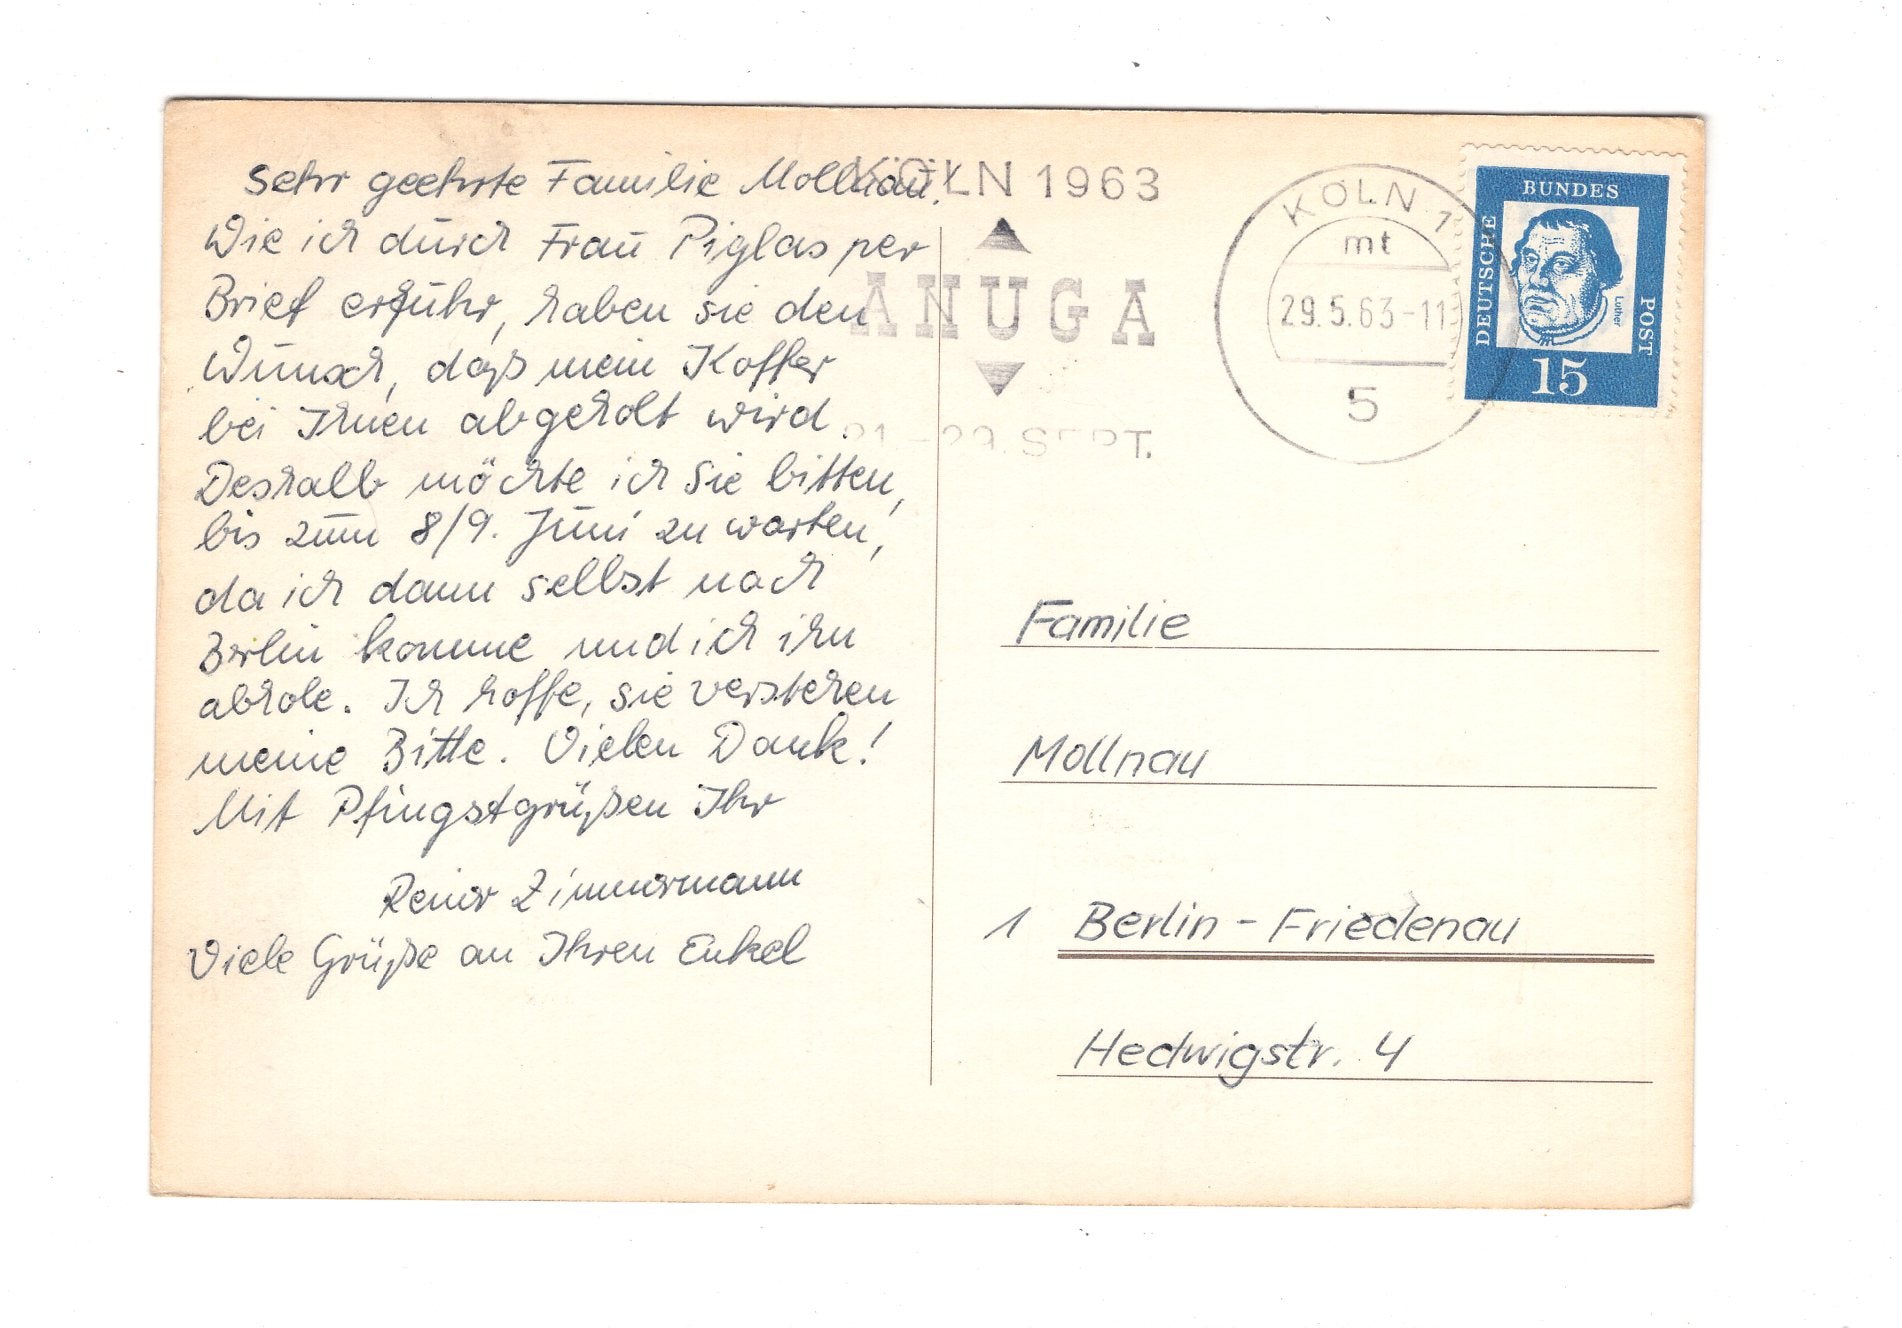 Sehr geehrte Familie Mollnau!
Wie ich durch Frau Piglas per
Brief erfuhr, haben sie den
Wunsch, daß mein Koffer
bei Ihnen abgeholt wird.
Deshalb möchte ich Sie bitten,
bis zum 8/9. Juni zu warten,
da ich dann selbst nach
Berlin komme und ich ihn
abhole. Ich hoffe, sie verstehen
meine Bitte. Vielen Dank!
Mit Pfingstgrüßen Ihr
Reiner Zimmermann
Viele Grüße an Ihren Enkel
KÖLN 1963
ANUGA
21.-29. SEPT.
KÖLN 1
mt
29.5.63-11
5
DEUTSCHE
BUNDES
POST
Luther
15
Familie
Mollnau
1 Berlin - Friedenau
Hedwigstr. 4